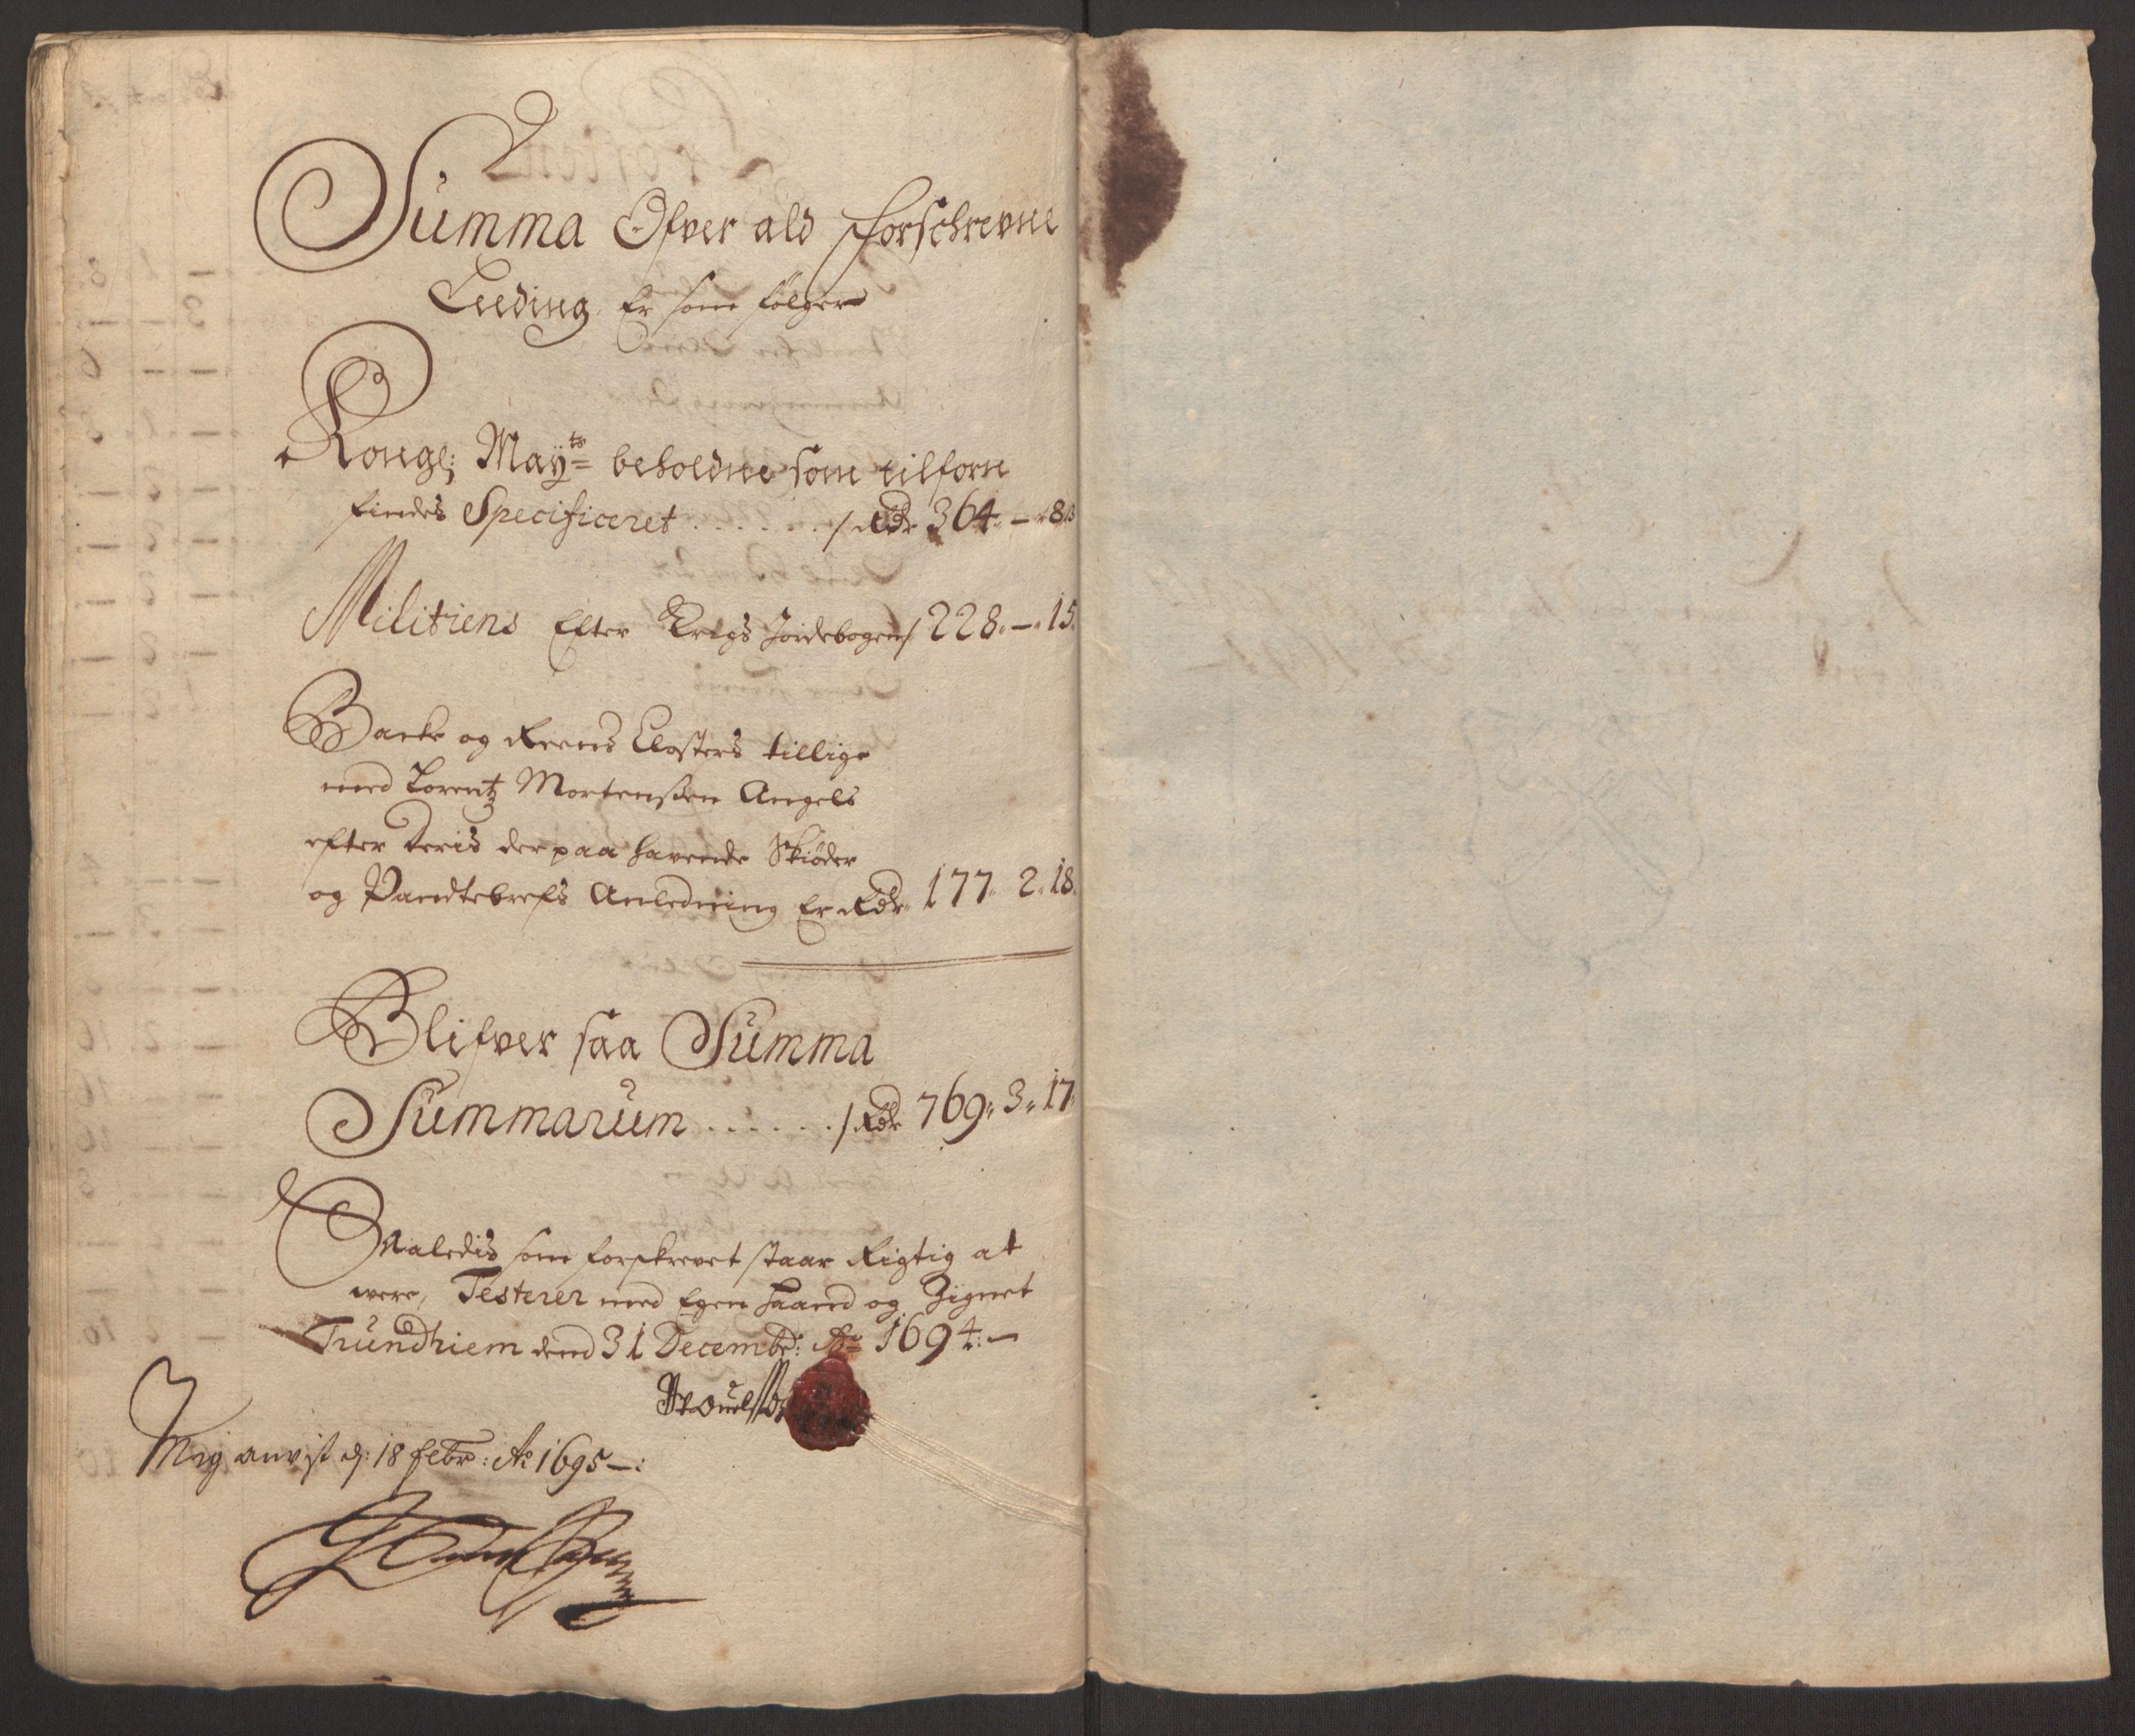 Summa Ofver ald forschrevne
Leeding Er som følger
Kongl: Maÿts beholdne som tilforn
findes Specificeret . . . . . . / Rdr 364 - 8 ß
Militiens Efter Krigs Jordebogen / 228 - 15
Backe og Reens Closters tillige
med Lorentz Mortensen Angels
efter deris derpaa havende Skiøder
og Pandtebrefs Anledning Er Rdr 177 2 18
Blifver saa Summa
Summarum . . . . . . / Rdr 769 3 17
Saaledis som forskrevet staar Rigtig at
were, Testerer med Egen Haand og Zignet
Trundhiem dend 31 Decembr: Ao 1694
Mig anvist d: 18 febr: Ao 1695